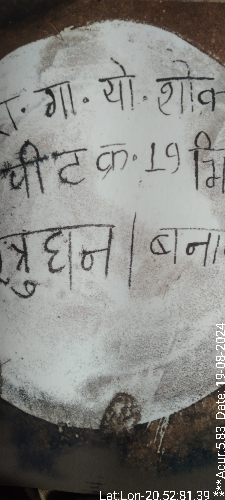 रा. गा. यो. शोक
पीट क्र. 19 भि
त्रुघ्न | बना
Lat:Lon-20,52:81,39
***Acur:5.83 Date: 19-08-2024